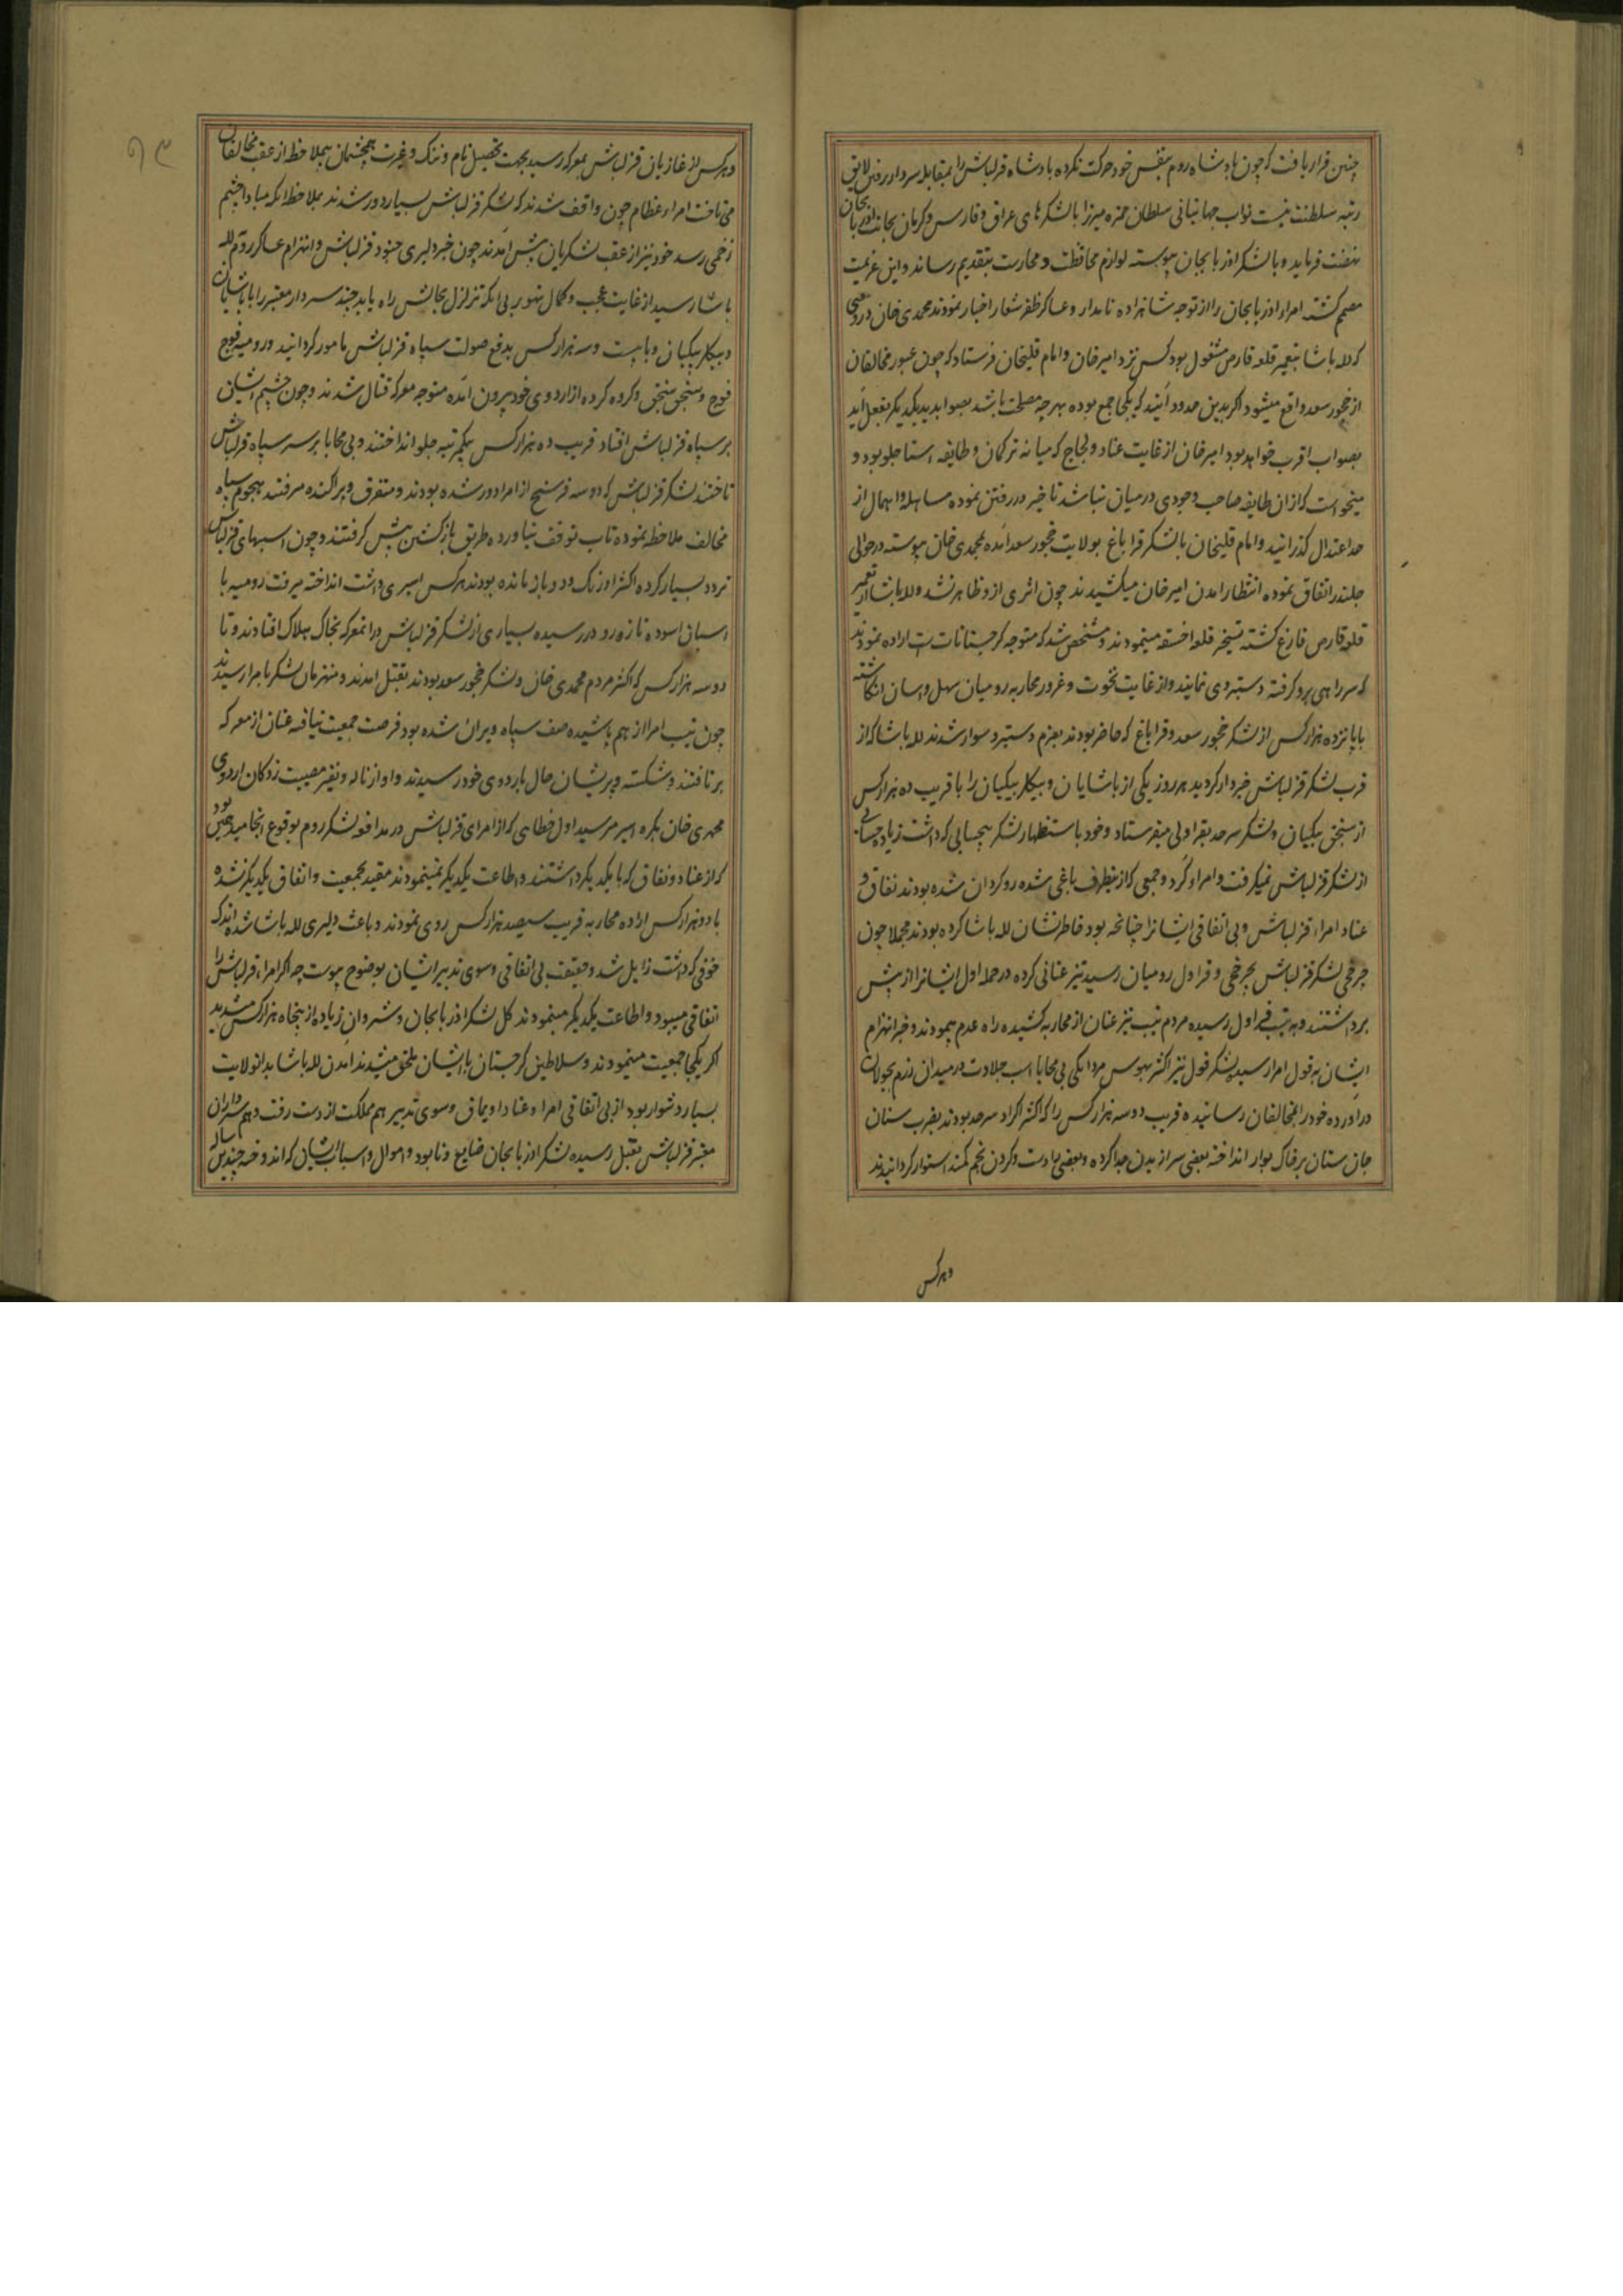 چنین قرار یافت که چون پادشاه روم بنفس خود حرکت نکرده پادشاه قزلباش را بمقابله سردار رفتن لایق
رتبه سلطنت نیست نواب جهانبانی سلطان حمزه میرزا بالشکرهای عراق و فارس و کرمان بجانب اذربایجان
نهضت فرماید و بالشکر اذربایجان پیوسته لوازم محافظت و محارست بتقدیم رساند و این عزیمت
مصمم کشته امراء اذربایجان را از توجه شاهزاده نامدار و عساکر ظفر شعار اخبار نمودند محمدی خان در وقتی
که لله پاشا بتعمیر قلعه قارص مشغول بود کس نزد امیرخان و امام قلیخان فرستاد که چون عبور مخالفان
از چخور سعد واقع میشود اکر بدین حدود آئید که یکجا جمع بوده بهرچه مصلحت باشد بصوابدید یکدیکر بفعل آید
بصواب اقرب خواهد بود امیرخان از غایت عناد و لجاج که میانه ترکمان و طایفه استاجلو بود و
میخواست که ازان طایفه صاحب وجودی در میان نباشد تاخیر در رفتن نموده مساهله و اهمال از
حد اعتدال کذرانید و امام قلیخان بالشکر قراباغ بولایت چخور سعد آمده بمحمدی خان پیوسته در حوالی
جلدر اتفاق نموده انتظار امدن امیرخان میکشیدند چون اثری از و ظاهر نشد و لله پاشا از تعمیر
قلعه قارص فارغ کشته تسخیر قلعه اخسقه مینمودند و مشخص شد که متوجه کرجستانات است اراده نمودند
که سر راهی برو کرفته دستبردی نمایند و از غایت نخوت و غرور محاربه رومیان سهل و اسان انکاشته
با پانزده هزار کس از لشکر چخور سعد و قراباغ که حاضر بودند بعزم دستبرد سوار شدند لله پاشا که از
قرب لشکر قزلباش خبردار کردید هر روز یکی از پاشایان و بیکلربیکیان را با قریب ده هزار کس
از سنجق بیکیان و لشکر سرحد بقراولی میفرستاد و خود باستظهار لشکر بیحسابی که داشت زیاده حسابی
از لشکر قزلباش نمیکرفت و امراء کرد و جمعی که ازینطرف یاغی شده رو کردان شده بودند نفاق و
عناد امراء قزلباش و بی اتفاقی ایشانرا چنانچه بود خاطرنشان لله پاشا کرده بودند مجملا چون
چرخچی لشکر قزلباش بچرخچی و قراول رومیان رسید تیز عنانی کرده در حمله اول ایشانرا از پیش
برداشتند و به تیپ قراول رسیده مردم تیپ نیز عنان از محاربه کشیده راه عدم پیمودند و خبر انهزام
ایشان به قول امرا رسیده لشکر قول نیز اکثر بهوس مردانکی بی محابا اسب جلادت در میدان رزم بجولان
دراورده خود را بمخالفان رسانیده قریب دو سه هزار کس را که اکثر اکراد سرحد بودند بضرب سنان
جان ستان بر خاک بوار انداخته بعضی سر از بدن جدا کرده و بعضی را دست و کردن بخم کمند استوار کردانیدند
وهرکس
۹۳
وهرکس از غازیان قزلباش بمعرکه رسید بجهت تحصیل نام و ننک و غیرت همچشمان بیملاحظه از عقب مخالفان
می تاخت امراء عظام چون واقف شدند که لشکر قزلباش بسیار دور شدند بملاحظه انکه مبادا چشم
زخمی رسد خود نیز از عقب لشکریان پیش آمدند چون خبر دلیری جنود قزلباش و انهزام عساکر روم بلله
پاشا رسید از غایت عجب و کمال تهور بی انکه تزلزل بحالش راه یابد چند سردار معتبر را با پاشایان
و بیکلربیکیان و با بیست و سه هزار کس بدفع صولت سپاه قزلباش مامور کردانید و رومیه فوج
فوج و سنجق سنجق و کروه کروه از اردوی خود بیرون آمده متوجه معرکه قتال شدند و چون چشم ایشان
بر سپاه قزلباش افتاد قریب ده هزار کس بیکمرتبه جلو انداختند و بی محابا بر سر سپاه قزلباش
تاختند لشکر قزلباش که دو سه فرسخ از امرا دور شده بودند و متفرق و پراکنده میرفتند هجوم سپاه
مخالف ملاحظه نموده تاب توقف نیاورده طریق بازکشتن پیش کرفتند و چون اسبهای قزلباش
تردد بسیار کرده اکثر از تک و دو باز مانده بودند هرکس اسیری داشت انداخته میرفت رومیه با
اسبان اسوده تازه رو در رسیده بسیاری از لشکر قزلباش درانمعرکه بخاک هلاک افتادند و تا
دو سه هزار کس که اکثر مردم محمدی خان و لشکر چخور سعد بودند بقتل امدند و منهزمان لشکر بامرا رسیدند
چون تیپ امرا از هم پاشیده صف سپاه ویران شده بود فرصت جمعیت نیافته عنان از معرکه
برتافتند و شکسته و پریشان حال باردوی خود رسیدند و اواز ناله و نفیر مصیبت زدکان اردوی
محمدی خان بکره اثیر میرسید اول خطایی که از امرای قزلباش در مدافعه لشکر روم بوقوع انجامید همین بود
که از عناد و نفاق که با یکدیکر داشتند و اطاعت یکدیکر نمینمودند مقید بجمعیت و اتفاق یکدیکر نشده
با دو هزار کس اراده محاربه قریب سیصد هزار کس روی نمودند و باعث دلیری لله پاشا شده اندک
خوفی که داشت زایل شد و حقیقت بی اتفاقی و سوی تدبیر ایشان بوضوح پیوست چه اکر امراء قزلباش را
اتفاقی میبود و اطاعت یکدیکر مینمودند کل لشکر اذربایجان و شروان زیاده از پنجاه هزار کس میشدند
اکر یکجا جمعیت مینمودند و سلاطین کرجستان با ایشان ملحق میشدند امدن لله پاشا بدانولایت
بسیار دشوار بود از بی اتفاقی امرا و عناد اویماق و سوی تدبیر هم مملکت از دست رفت و هم سرداران
معتبر قزلباش بقتل رسیده لشکر اذربایجان ضایع و نابود و اموال و اسباب ایشان که اندوخته چندین ساله